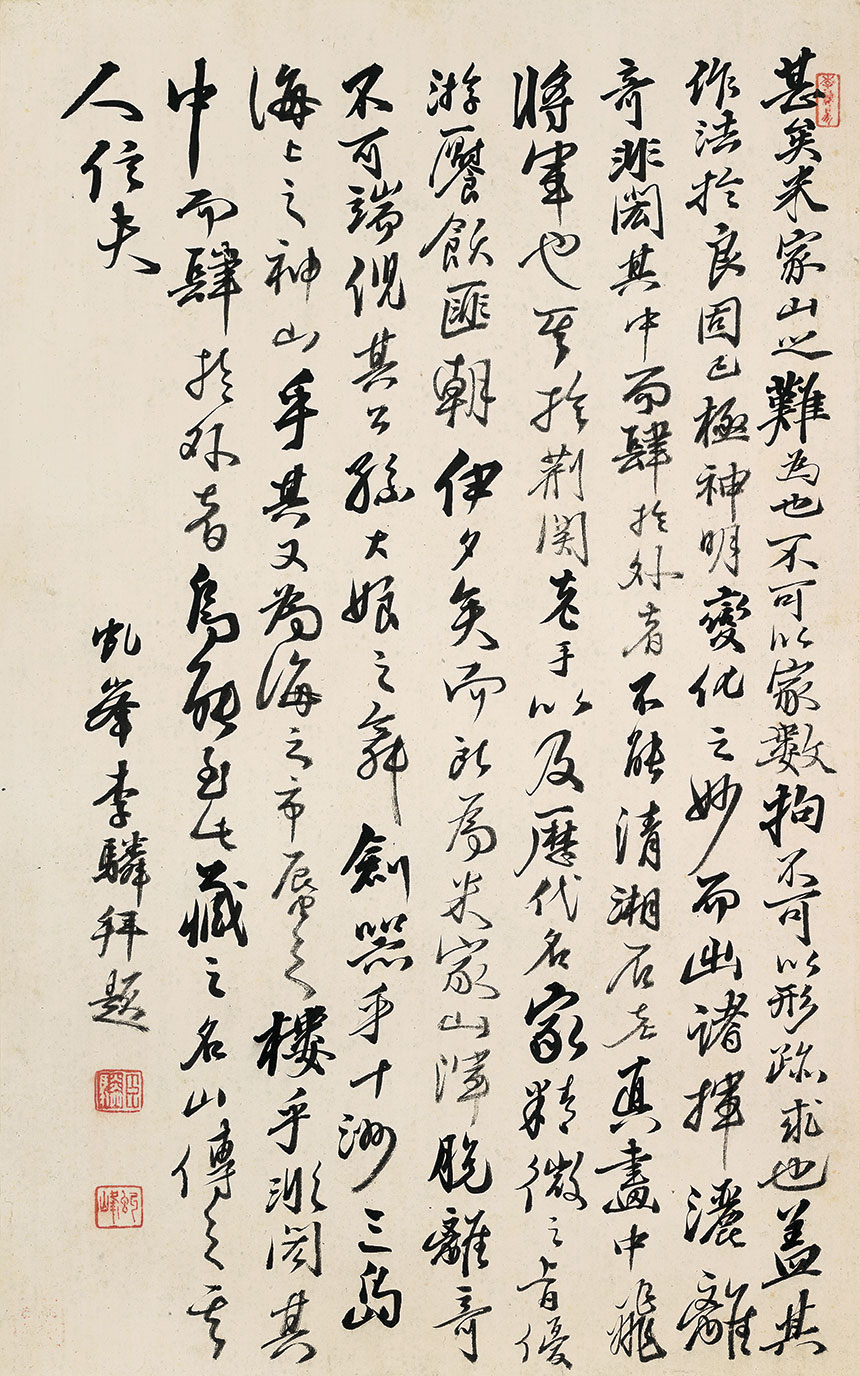 甚矣米家山之難為也不可以家數拘不可以形跡求也蓋其
作法於良固已極神明變化之妙而出諸揮灑離
奇非閎其中而肆於外者不能清湘石老真畫中飛
將軍也其於荊関老手以及歷代名家精微之旨優
游饜飫匪朝伊夕矣而所為米家山澤脫離奇
不可端倪其公孫大娘之舞劍器乎十洲三島
海上之神山乎其又為海之市蜃之樓乎非閎其
中而肆於外者烏能至此藏之名山傳之其
人信夫
虬峯李驎拜題
虬峰